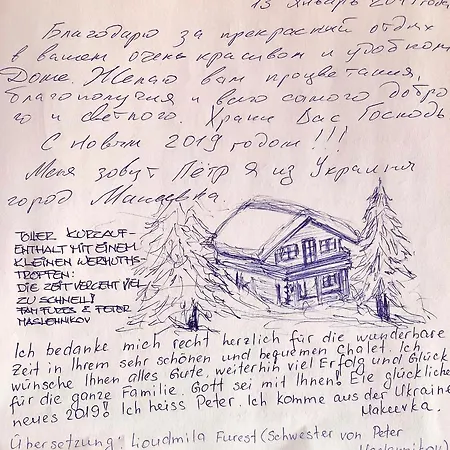 13 Январь 2019 года
Благодарю за прекрасный отдых
в вашем очень красивом и удобном
Доме. Желаю вам процветания,
благополучия и всего самого добро
го и светлого. Храни Вас Господь
С Новым 2019 годом!!!
Меня зовут Пётр Я из Украины
город Макеевка.
TOLLER KURZAUF-
ENTHALT MIT EINEM
KLEINEN WERMUTHS-
TROPFEN:
DIE ZEIT VERGEHT VIEL
ZU SCHNELL!
FAM FURES & PETER
MASLENNIKOV
Ich bedanke mich recht herzlich für die wunderbare
Zeit in Ihrem sehr schönen und bequemen Chalet. Ich
wünsche Ihnen alles Gute, weiterhin viel Erfolg und Glück
für die ganze Familie. Gott sei mit Ihnen! Eie glückliches
neues 2019! Ich heiss Peter. Ich komme aus der Ukraine
Makeevka.
Übersetzung: Lioudmila Furest (Schwester von Peter
Maslennikov)